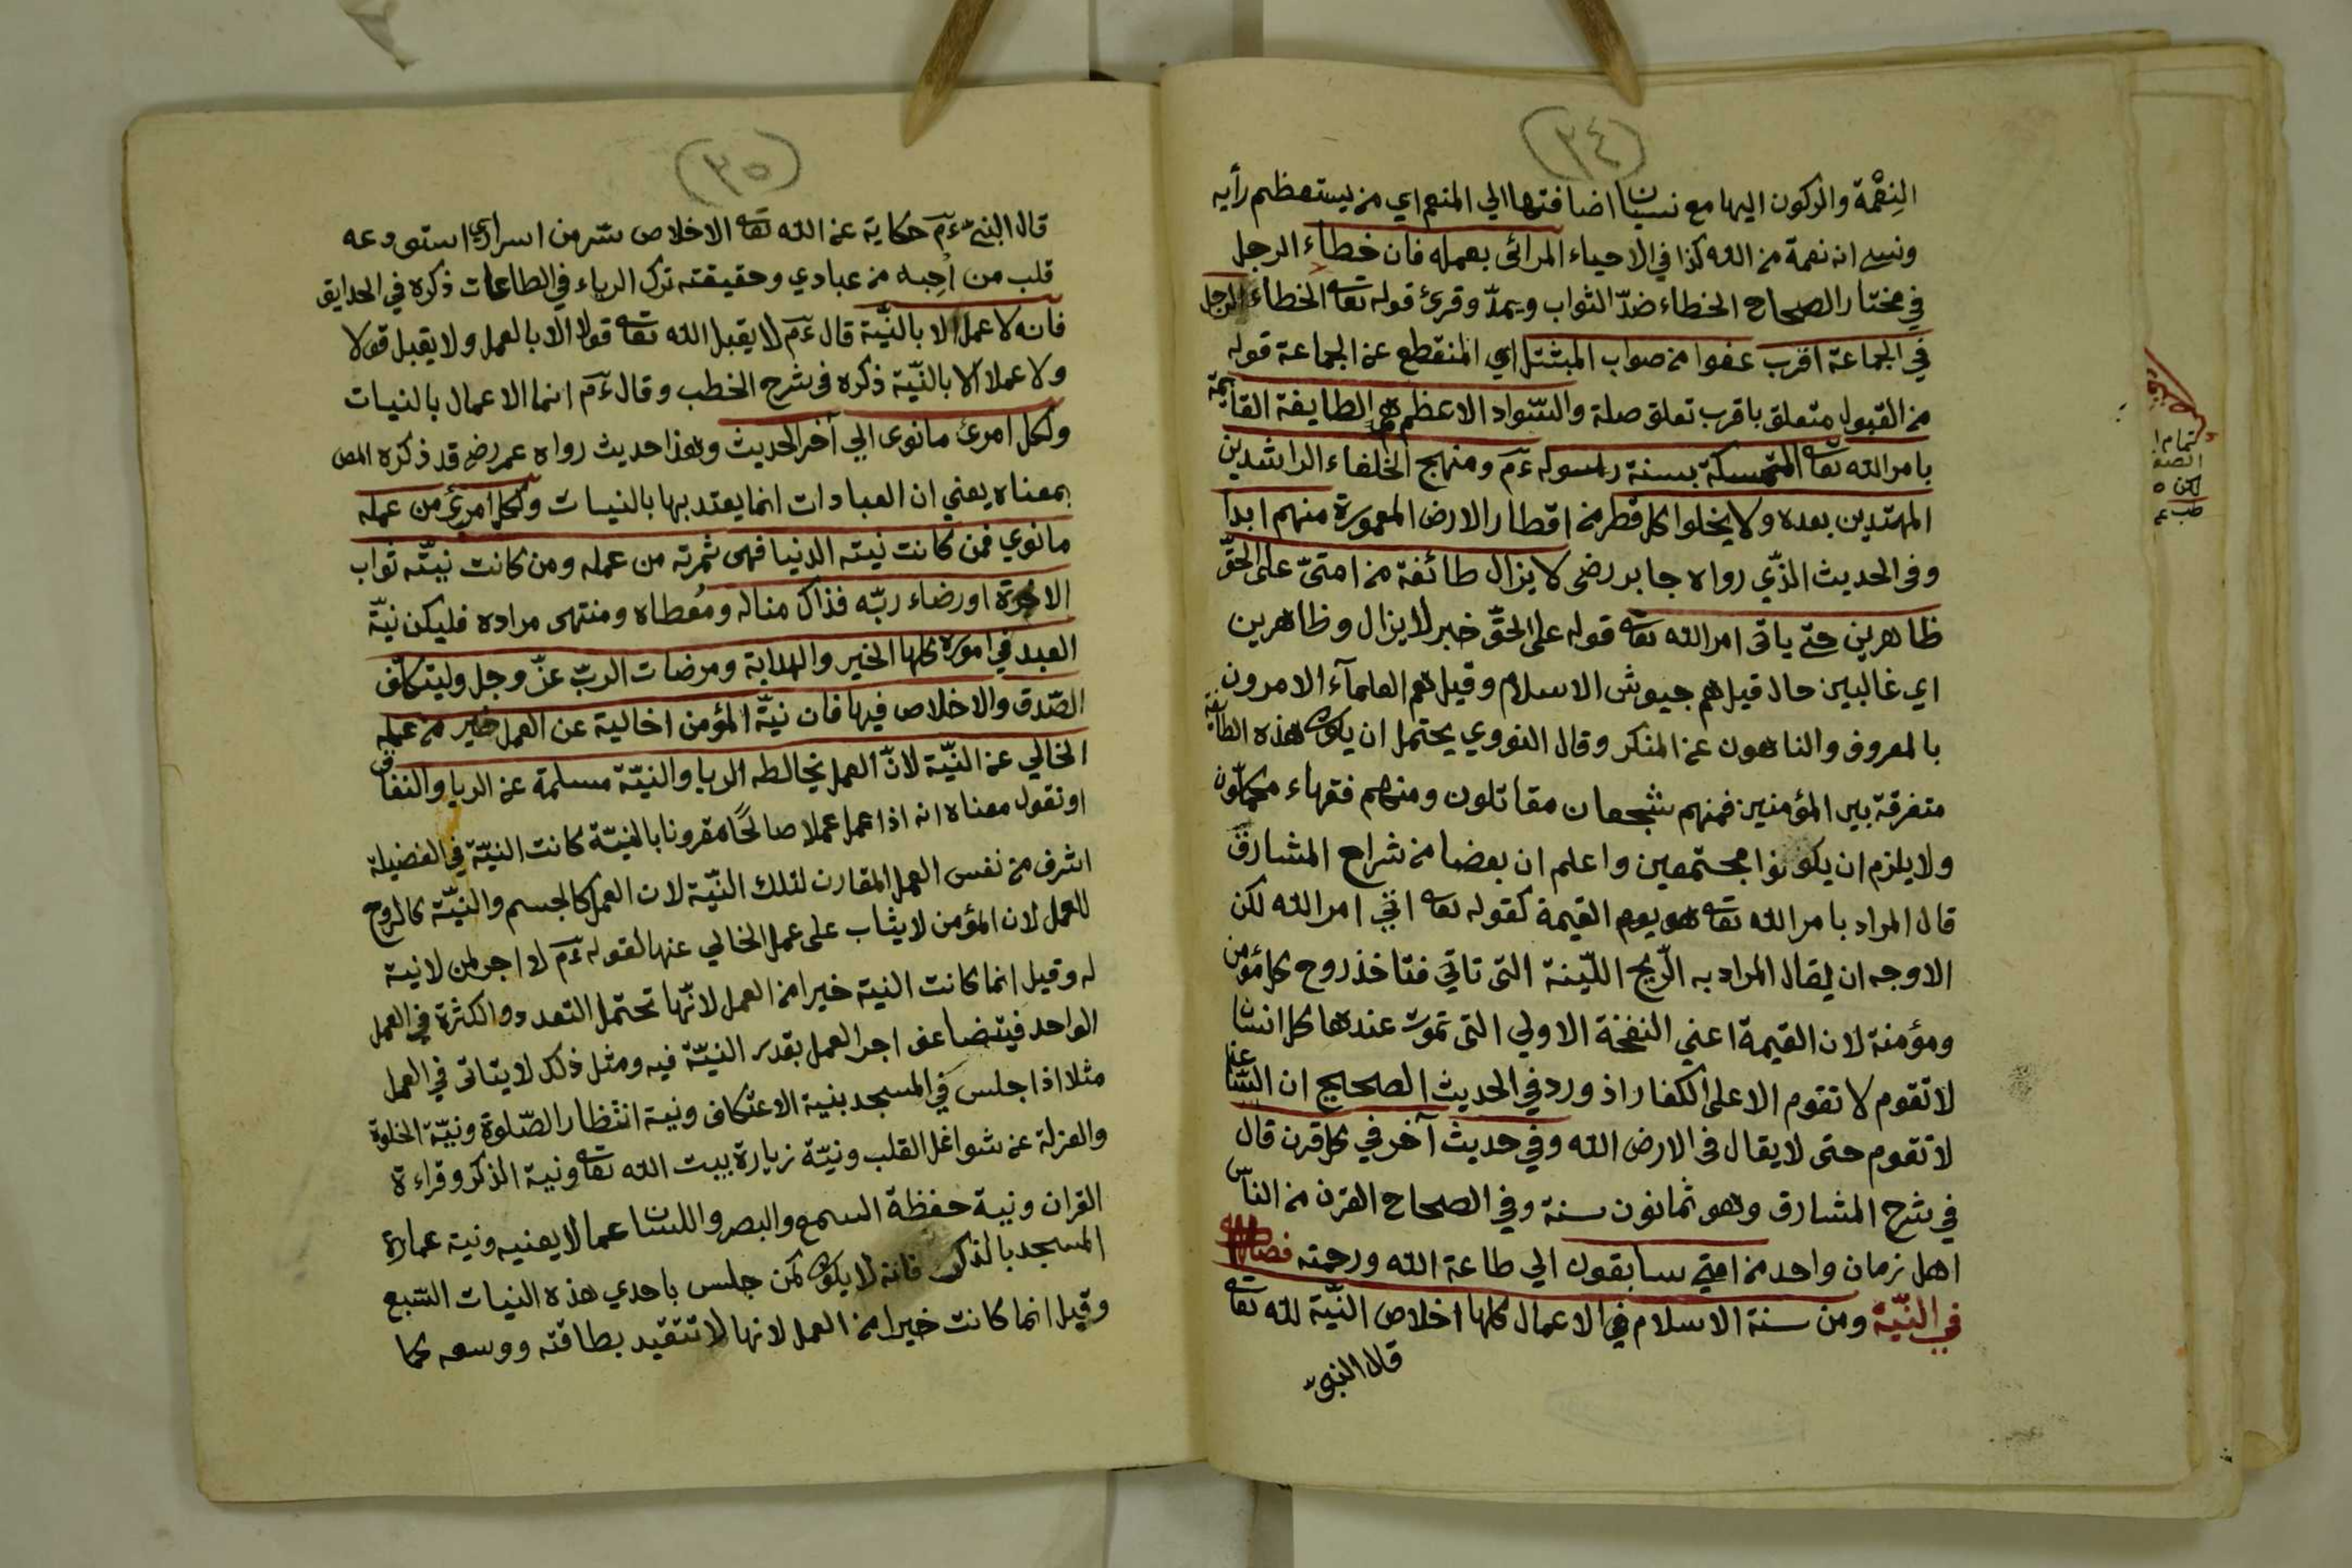 (٣٤)
النعمة والركون اليها مع نسيان اضافتها الي المنعم اي من يستعظم رأيه
ونسي انه نعمة من الله كذا في الاحياء المرائى بعمله فان خطاء الرجل
في مختار الصحاح الخطاء ضدّ الثواب ويمدّ وقرئ قوله تعا الخطاء الرجل
في الجماعة اقرب عفوا من صواب المبتتل اي المنقطع عن الجماعة قوله
من القبول متعلق باقرب تعلق صلة والسّواد الاعظم هي الطايفة القايمة
بامر الله تعا المتمسكة بسنة رسوله ءم ومنهج الخلفاء الراشدين
المهتدين بعده ولا يخلوا كل قطر من اقطار الارض المعمورة منهم ابدا
وفى الحديث الذّي رواه جابر رضى لا يزال طائفة من امتىّ على الحقّ
ظاهرين حتى ياتى امر الله تعا قوله على الحقّ خبر لا يزال وظاهرين
اي غالبين حال قيل هم جيوش الاسلام وقيل هم العلمآء الامرون
بالمعروف والناهون عن المنكر وقال النووي يحتمل ان يكون هذه الطائفة
متفرقة بين المؤمنين فمنهم شجعان مقاتلون ومنهم فقهاء مكملّون
ولا يلزم ان يكونوا مجتمعين واعلم ان بعضا من شراح المشارق
قال المراد بامر الله تعا هو يوم القيمة كقوله تعا اتي امر الله لكن
الاوجه ان يقال المراد به الرّيح الليّنة التى تاتي فتاخذ روح كل مؤمن
ومؤمنة لان القيمة اعني النفخة الاولي التى تموت عندها كل انسان
لا تقوم لا تقوم الا على الكفار اذ ورد في الحديث الصحيح ان السّاعة
لا تقوم حتى لا يقال فى الارض الله وفي حديث آخر في كل قرن قال
في شرح المشارق وهو ثمانون سنة وفي الصحاح القرن من الناس
اهل زمان واحد من امتي سابقون الي طاعة الله ورحمته فصل
في النيّة ومن سنة الاسلام في الاعمال كلها اخلاص النيّة لله تعا
قال النبىّ
(٣٥)
قال النبىّ ءم حكاية عن الله تعا الاخلاص سّر من اسراري استودعه
قلب من اُحِبه من عبادي وحقيقته ترك الرياء في الطاعات ذكره في الحدايق
فانه لا عمل الا بالنيّة قال ءم لا يقبل الله تعا قولا الّا بالعمل ولا يقبل قولا
ولا عملا الا بالنيّة ذكره فى شرح الخطب وقال ءم انما الاعمال بالنيات
ولكل امرئ ما نوى الي آخر الحديث وهذا حديث رواه عمر رضى قد ذكره المص
بمعناه يعني ان العبادات انما يعتد بها بالنيات ولكل امرئ من عمله
ما نوي فمن كانت نيته الدنيا فهى ثمرته من عمله ومن كانت نيّته ثواب
الاخرة او رضاء ربّه فذاك مناله ومُعطاه ومنتهى مراده فليكن نيّة
العبد في اموره كلها الخير والهداية ومرضات الربّ عزّ وجل وليتكلّف
الصّدق والاخلاص فيها فان نيّة المؤمن اخالية عن العمل خير من عمله
الخالي عن النيّة لانّ العمل يخالطه الريا والنيّة مسلمة عن الريا والنفاق
او نقول معناه انه اذا عمل عملا صالحًا مقرونا بالنيّة كانت النيّة في الفضيلة
اشرف من نفس العمل المقارن لتلك النيّة لان العمل كالجسم والنيّة كالروح
للعمل لان المؤمن لا يثاب على عمل الخالي عنها لقوله ءم لا اجر لمن لا نية
له وقيل انما كانت النية خيرا من العمل لانّها تحتمل التعدد والكثرة في العمل
الواحد فيتضاعف اجر العمل بقدر النيّة فيه ومثل ذلك لا يتاتى في العمل
مثلا اذا جلس في المسجد بنية الاعتكاف ونية انتظار الصّلوة ونيّة الخلوة
والعزلة عن شواغل القلب ونيّة زيارة بيت الله تعا ونية الذكر وقراءة
القران ونية حفظة السمع والبصر واللسان عما لا يعنيه ونية عمارة
المسجد بالذكر فانه لا يكون كمن جلس باحدي هذه النيات السّبع
وقيل انما كانت خيرا من العمل لانها لا تتقيد بطاقته ووسعه كما